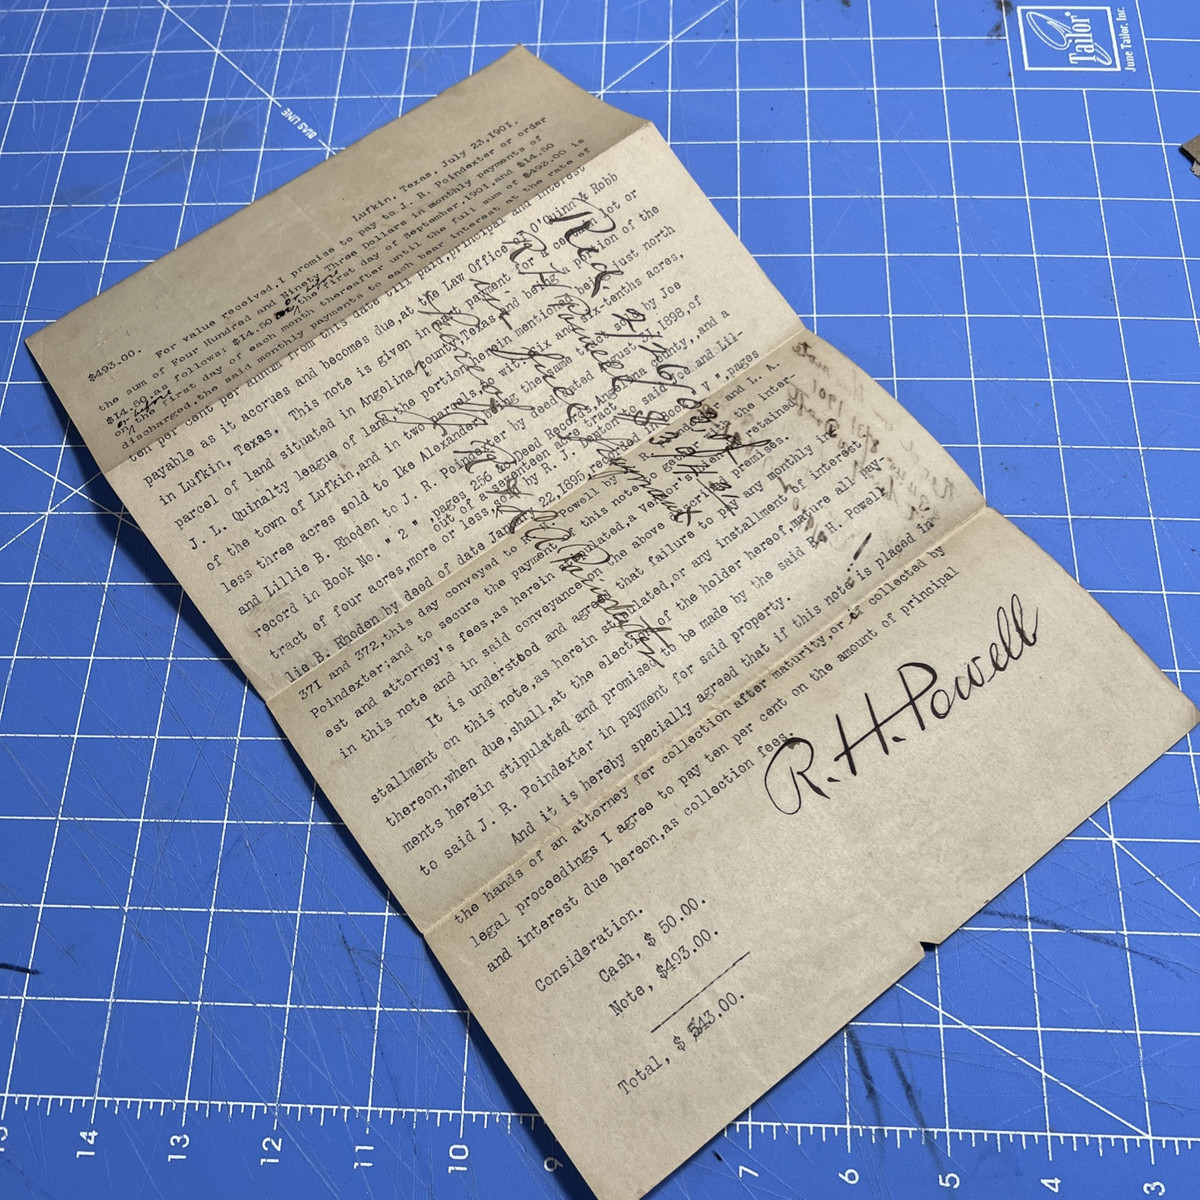 Lufkin, Texas, July 23,1901.
$493.00. For value received,I promise to pay to J. R. Poindexter or order
the sum of Four Hundred and Ninety Three Dollars in monthly payments of
$14.50 as follows; $14.50 on the first day of September,1901,and $14.50
on the first day of each month thereafter until the full sum of $493.00 is
discharged,the said monthly payments to each bear interest at the rate of
ten per cent per annum from this date till paid,principal and interest
payable as it accrues and becomes due,at the Law Office O'Quinn & Robb
in Lufkin, Texas. This note is given in part payment for a certain lot or
parcel of land situated in Angelina county,Texas,and being a portion of the
J. L. Quinalty league of land,the portion herein mentioned being just north
of the town of Lufkin,and in two parcels, with six and six-tenths acres,
less three acres sold to Ike Alexander,being the same tract sold by Joe
and Lillie B. Rhoden to J. R. Poindexter by deed dated August 1898,of
record in Book No. "2 " ,pages 256 Deed Records,Angelina county,,and a
tract of four acres,more or less, out of a seventeen acre tract said Joe and Lil-
lie B. Rhoden by deed of date Jan 22,1895,recorded Book V ",pages
371 and 372,this day conveyed to Powell by and L. A.
Poindexter;and to secure the payment this note the inter-
est and attorney's fees,as herein stipulated,a Vendor's retained
in this note and in said conveyance on the above described premises.
It is understood and agreed that failure to pay any monthly in-
stallment on this note,as herein stipulated,or any installment of interest
thereon,when due,shall,at the election of the holder hereof,mature all pay-
ments herein stipulated and promised to be made by the said R. H. Powell
to said J. R. Poindexter in payment for said property.
And it is hereby specially agreed that if this note is placed in
the hands of an attorney for collection after maturity,or if collected by
legal proceedings I agree to pay ten per cent on the amount of principal
and interest due hereon,as collection fees.
R. H. Powell
Consideration.
Cash, $ 50.00.
Note, $493.00.
Total, $ 543.00.
Recd of
R. H. Powell
in full payment
Poindexter
Tailor
June Tailor, Inc.
BIAS LINE
15 14 13 12 11 10 9 7 6 5 4 3